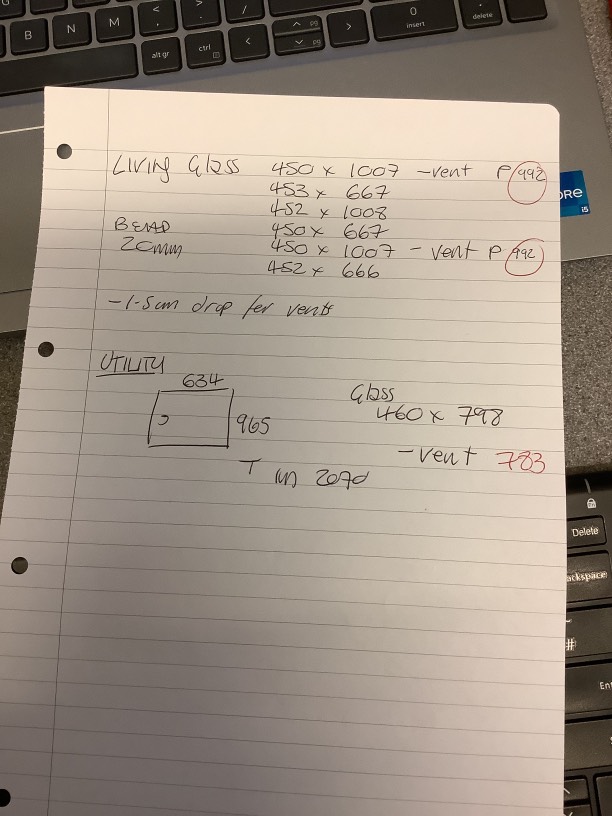 B
N
M
<
,
>
.
?
/
alt gr
ctrl
<
pg
pg
>
0
insert
.
delete
CORE
i5
LIVING Glass 450 x 1007 - vent P 992
453 x 667
452 x 1008
BEAD 450 x 667
20mm 450 x 1007 - vent P 992
452 x 666
-1.5cm drop for vents
UTILITY
634
965
Glass
460 x 798
- vent 783
T in 2070
Delete
Backspace
~
#
Ent